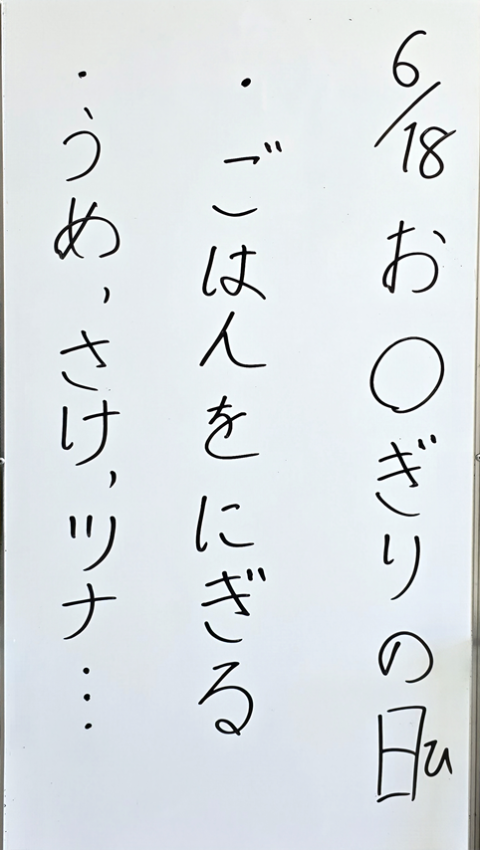 6/18 お〇ぎりの日ひ
・ごはんをにぎる
・うめ,さけ,ツナ…